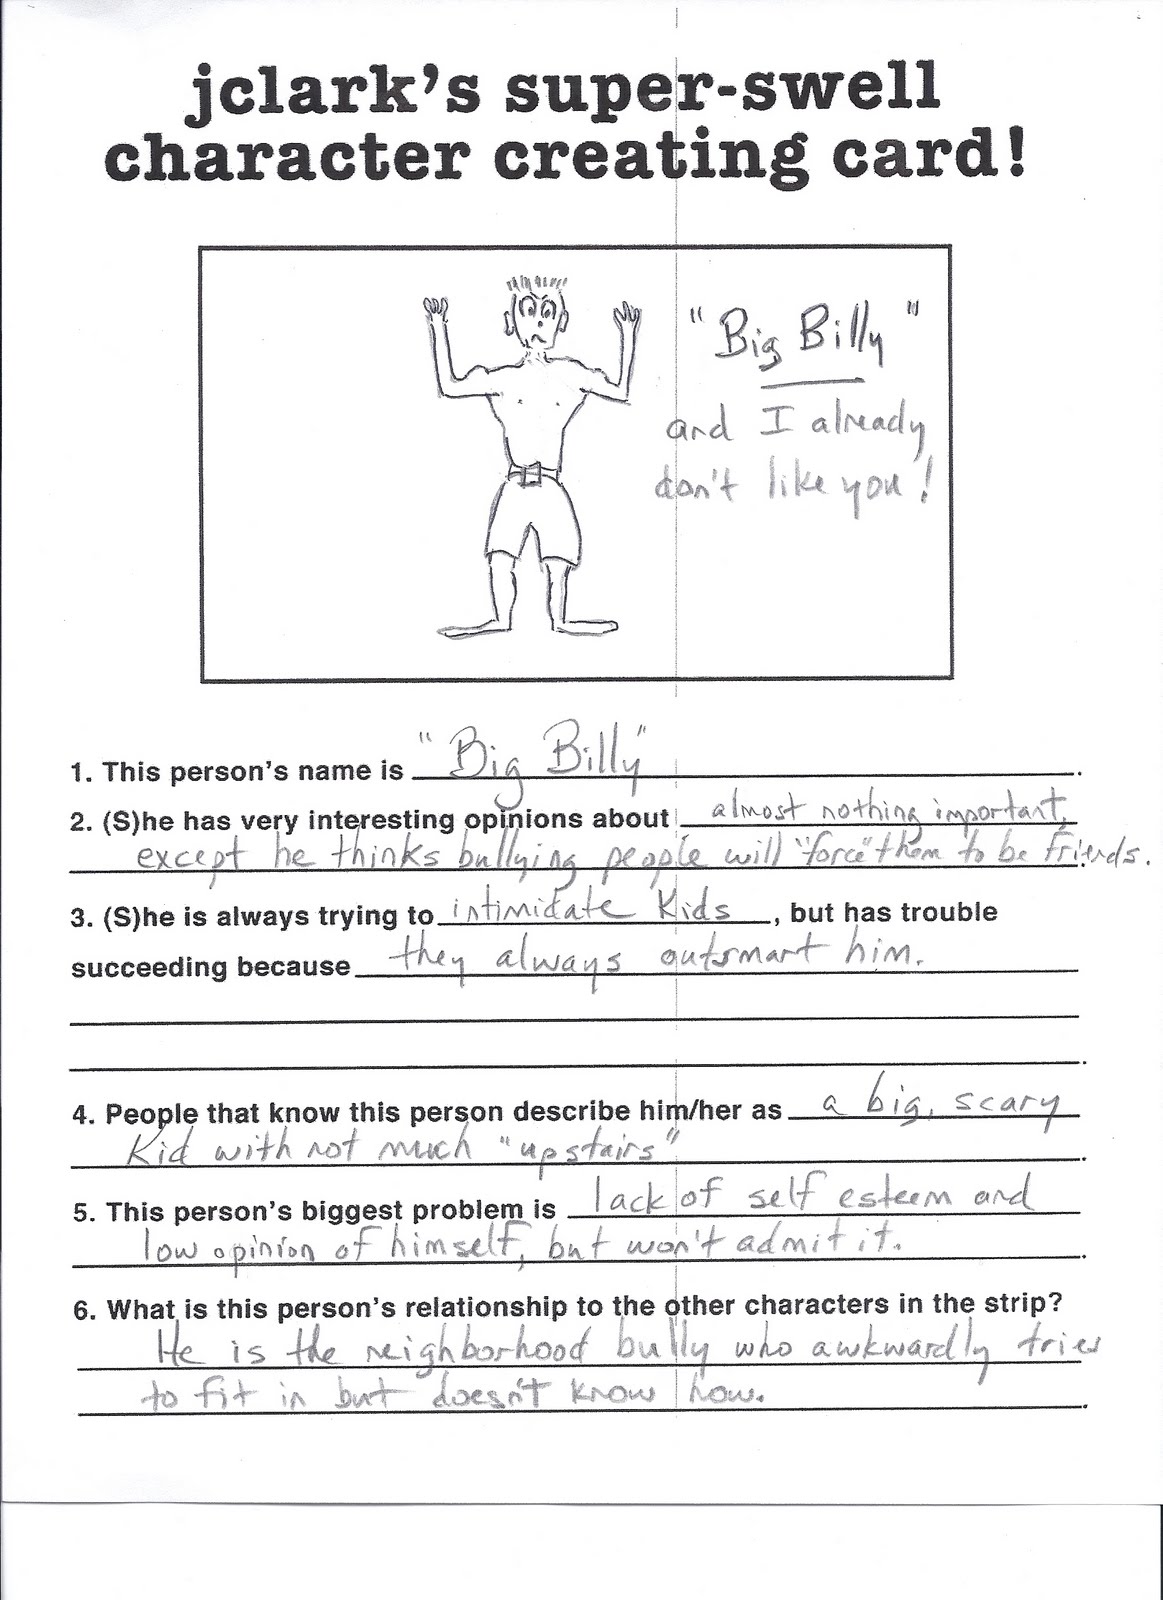 jclark's super-swell
character creating card!
"Big Billy"
and I already
don't like you!
1. This person's name is "Big Billy".
2. (S)he has very interesting opinions about almost nothing important,
except he thinks bullying people will "force" them to be friends.
3. (S)he is always trying to intimidate Kids, but has trouble
succeeding because they always outsmart him.
4. People that know this person describe him/her as a big, scary
Kid with not much "upstairs".
5. This person's biggest problem is lack of self esteem and
low opinion of himself, but won't admit it.
6. What is this person's relationship to the other characters in the strip?
He is the neighborhood bully who awkwardly tries
to fit in but doesn't know how.